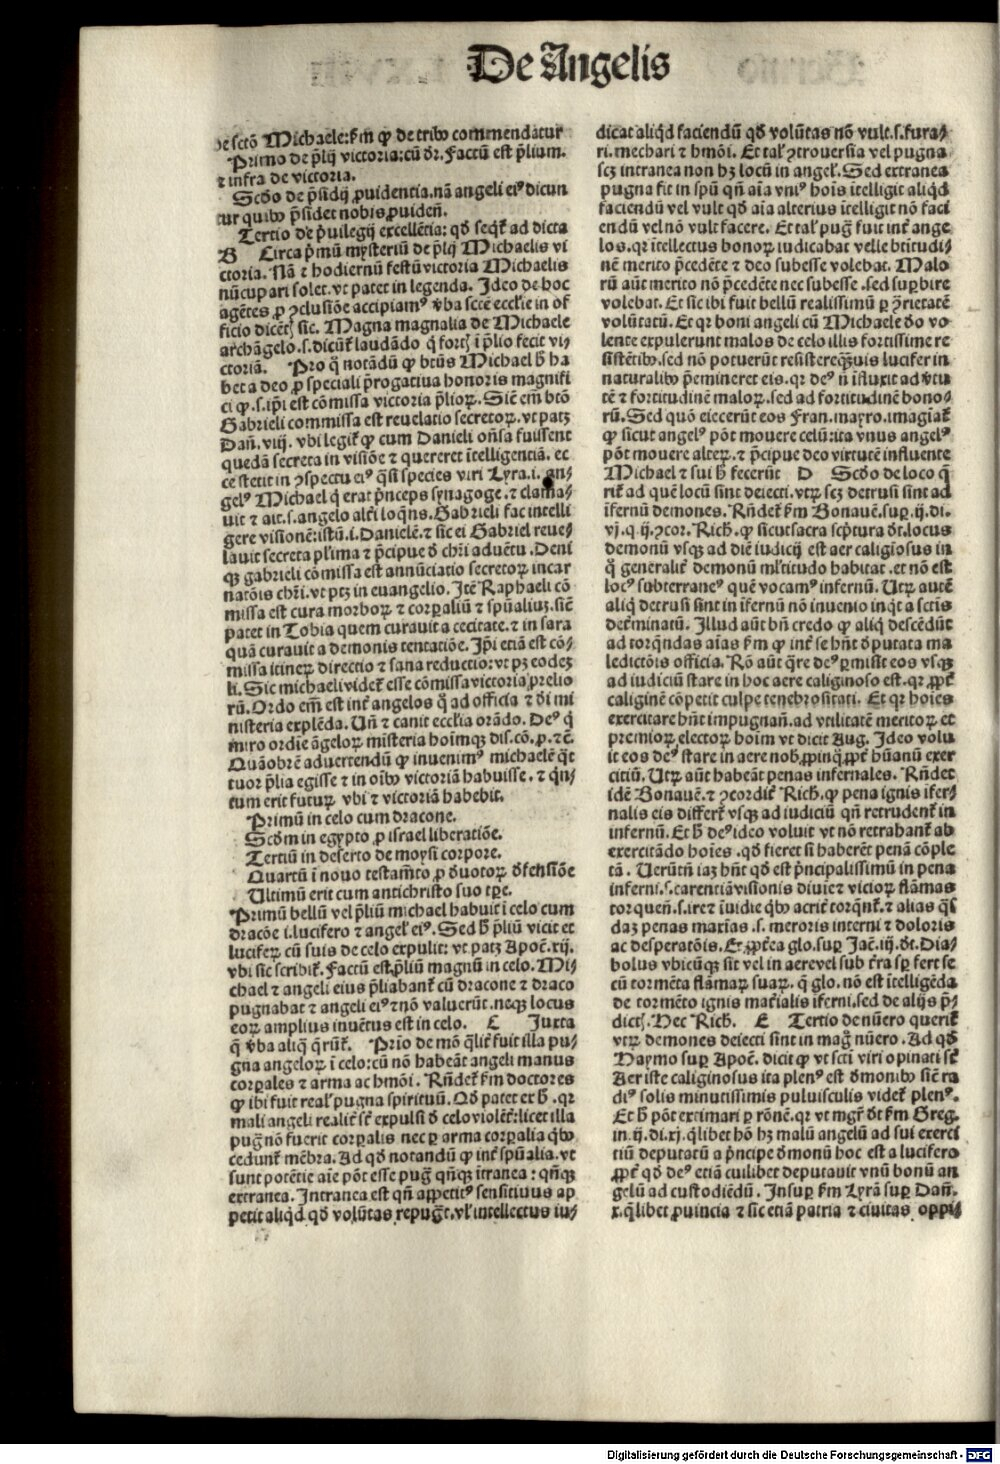 De Angelis
de sctõ Michaele: ẜm ꝙ de tribꝰ commendatur
Primo de p̃lij victoria: cũ dr̃. Factũ est p̃lium.
⁊ infra de victoria.
Scđo de p̃sidij ꝓuidentia. nã angeli eiꝰ dicun
tur quibꝰ p̃sidet nobis ꝓuideñ.
Tertio de p̃uilegij excellẽtia: qđ seqt̃ ad dicta
B Circa p̃mũ mysteriũ de p̃lij Michaelis vi
ctoria. Nã ⁊ hodiernũ festũ victoria Michaelis
nũcupari solet. vt patet in legenda. Ideo de hoc
agẽtes ꝓ ꝯclusiõe accipiamꝰ v̾ba sctẽ eccl̃ie in of
ficio dicẽtꝭ sic. Magna magnalia de Michaele
archãgelo. s. dicũt̃ laudãdo q̃ fortꝭ i p̃lio fecit vi⸗
ctoriã. Pro q̃ notãdũ ꝙ btũs Michael h̃ ha
bet a deo ꝓ speciali p̃rogatiua honoris magnifi
ci ꝙ. s. ip̃i est cõmissa victoria p̃lioꝝ. Sic̃ em̃ btõ
Gabrieli commissa est reuelatio secretoꝝ. vt patꝫ
Dañ. viij. vbi legit̃ ꝙ cum Danieli oñsa fuissent
quedã secreta in visiõe ⁊ quereret ĩtelligentiã. ec
ce stetit in ꝯspectu eiꝰ q̃si species viri Lyra. i. an⸗
gelꝰ Michael q̃ erat p̃nceps synagoge. ⁊ clama⸗
uit ⁊ ait. s. angelo alt̃i loq̃ns. Gabrieli fac intelli
gere visionẽ: istũ. i. Danielẽ. ⁊ sic ei Gabriel reue⸗
lauit secreta pl̃ima ⁊ p̃cipue đ chr̃i aduẽtu. Deni
qꝫ gabrieli cõmissa est annũciatio secretoꝝ incar
natõis chr̃i. vt ptꝫ in euangelio. Itẽ Raphaeli cõ
missa est cura morboꝝ ⁊ corꝑaliũ ⁊ sp̃ualiuꝫ. sic̃
patet in Tobia quem curauit a cecitate. ⁊ in sara
quã curauit a demonis tentatiõe. Ip̃i etiã est cõ⸗
missa itineꝝ directio ⁊ sana reductio: vt pꝫ eodeꝫ
li. Sic michaeli videt̃ esse cõmissa victoria prelio
rũ. Ordo em̃ est int̃ angelos q̃ ad officia ⁊ đi mi
nisteria explẽda. Uñ ⁊ canit eccl̃ia orãdo. Deꝰ q̃
miro ordĩe ãgeloꝝ mĩsteria hoĩmqꝫ dis. cõ. ꝓ. ⁊c̃.
Quãobrẽ aduertendũ ꝙ inuenimꝰ michaelẽ q̃t
tuor p̃lia egisse ⁊ in oĩbꝰ victoriã habuisse. ⁊ q̃n⸗
tum erit futuꝝ vbi ⁊ victoriã habebit.
Primũ in celo cum dracone.
Scđm in egypto ꝓ israel liberatiõe.
Tertiũ in deserto de moysi corpore.
Quartũ ĩ nouo testam̃to ꝓ đuotoꝝ đfensiõe
Ultimũ erit cum antichristo suo tp̃e.
Primũ bellũ vel p̃liũ michael habuit ĩ celo cum
dracõe i. lucifero ⁊ angel̃ eiꝰ. Sed h̃ p̃liũ vicit et
lucifeꝝ cũ suis de celo expulit: vt patꝫ Apoc̃. xij.
vbi sic scribit̃. Factũ est p̃liũ magnũ in celo. Mi⸗
chael ⁊ angeli eius p̃liabant̃ cũ dracone ⁊ draco
pugnabat ⁊ angeli eiꝰ ⁊ nõ valuerũt. neqꝫ locus
eoꝝ amplius inuẽtus est in celo. C Juxta
q̃ v̾ba aliq̃ q̃runt̃. Prĩo de mõ q̃lit̃ fuit illa pu⸗
gna angeloꝝ ĩ celo: cũ nõ habeãt angeli manus
corꝑales ⁊ arma ac hm̃õi. Rñdet̃ ẜm doctores
ꝙ ibi fuit real̃ pugna spirituũ. Qđ patet ex h̃. qꝛ
mali angeli realit̃ sũt expulsi đ celo violẽt̃: licet illa
pug̃ nõ fuerit corꝑalis nec ꝑ arma corꝑalia q̃bꝰ
cedunt̃ mẽbra. Ad qđ notandũ ꝙ int̃ sp̃ualia. vt
sunt potẽtie aĩe põt esse pug̃ qñqꝫ ĩtranea: qñqꝫ
extranea. Intranea est qñ appetitꝰ sensitiuus ap
petit aliqđ qđ volũtas repug̃t. vl̃ intellectus iu⸗
dicat aliqđ faciendũ qđ volũtas nõ vult. s. fura⸗
ri. mechari ⁊ hm̃õi. Et tal̃ ꝯtrouersia vel pugna
scꝫ intranea non hꝫ locũ in angel̃. Sed extranea
pugna fit in spũ qñ aĩa vniꝰ hoĩs ĩtelligit aliqđ
faciendũ vel vult qđ aĩa alterius ĩtelligit nõ faci
endũ vel nõ vult facere. Et tal̃ pug̃ fuit int̃ ange
los. qꝛ ĩtellectus bonoꝝ iudicabat velle btĩtudi⸗
nẽ merito p̃cedẽte ⁊ deo subesse volebat. Malo
rũ aũt merito nõ p̃cedẽte nec subesse. sed suꝑbire
volebat. Et sic ibi fuit bellũ realissimũ ꝑ ꝯ̃rietatẽ
volũtatũ. Et qꝛ boni angeli cũ Michaele đo vo⸗
lente expulerunt malos de celo illis fortissime re
sistẽtibꝰ. sed nõ potuerũt resistere qꝫuis lucifer in
naturalibꝰ p̃emineret eis. qꝛ deꝰ ñ ĩfluxit ad v̾tu
tẽ ⁊ fortitudinẽ maloꝝ. sed ad fortitudinẽ bono⸗
rũ. Sed quõ eiecerũt eos Fran. mayro. imagiat̃
ꝙ sicut angelꝰ põt mouere celũ: ita vnus angelꝰ
põt mouere alteꝝ. ⁊ p̃cipue deo virtutẽ influente
Michael ⁊ sui h̃ fecerũt D Scđo de loco q̃
rit̃ ad quẽ locũ sint deiecti. vtꝝ scꝫ detrusi sint ad
ĩfernũ demones. Rñdet̃ ẜm Bonauẽ. suꝑ. ij. di.
vj. q. ij. ꝯcor. Rich. ꝙ sicut sacra scp̃tura đt. locus
demonũ vsqꝫ ad diẽ iudicij est aer caligiosus in
q̃ generalit̃ demonũ ml̃titudo habitat. et nõ est
locꝰ subterraneꝰ quẽ vocamꝰ infernũ. Utꝝ autẽ
aliq̃ detrusi sint in ĩfernũ nõ inuenio inq̃t a sctis
det̃minatũ. Illud aũt bñ credo ꝙ aliq̃ descẽdũt
ad torq̃ndas aĩas ẜm ꝙ int̃ se hñt đputata ma
ledictõis officia. Rõ aũt q̃re deꝰ ꝑmisit eos vsqꝫ
ad iudiciũ stare in hoc aere caliginoso est. qꝛ ꝓpt̃
caliginẽ cõpetit culpe tenebrositati. Et qꝛ hoĩes
exercitare hñt impugnañ. ad vtilitatẽ meritoꝝ et
premioꝝ electoꝝ hoĩm vt dicit Aug. Ideo volu
it eos deꝰ stare in aere nob̃ ꝓpinq̃ ꝓpt̃ hũanũ exer
citiũ. Utꝝ aũt habeãt penas infernales. Rñdet
idẽ Bonauẽ. ⁊ ꝯcordit̃ Rich. ꝙ pena ignis ĩfer⸗
nalis eis differt̃ vsqꝫ ad iudiciũ qñ retrudent̃ in
infernũ. Et h̃ deꝰ ideo voluit vt nõ retrahant̃ ab
exercitãdo hoĩes. qđ fieret si haberẽt penã cõple
tã. Uerũtñ iaꝫ hñt qđ est p̃ncipalissimũ in pena
inferni. s. carentiã visionis diuĩe ⁊ vicioꝝ flãmas
torqueñ. s. ire ⁊ ĩuidie q̃bꝰ acrit̃ torq̃nt̃. ⁊ alias q̃s
daꝫ penas marĩas. s. meroris interni ⁊ doloris
ac desperatõis. Et ꝓpt̃ea glo. suꝑ Jac̃. iij. đt. Dia⸗
bolus vbicũqꝫ sit vel in aere vel sub t̃ra sꝑ fert se
cũ tormẽta flãmaꝝ suaꝝ. q̃ glo. nõ est ĩtelligẽda
de tormẽto ignis mat̃ialis ĩferni. sed de alijs p̃⸗
dictꝭ. Hec Rich. E Tertio de nũero querit̃
vtꝝ demones deiecti sint in mag̃ nũero. Ad qđ
Haymo suꝑ Apoc̃. dicit ꝙ vt scti viri opinati sũt
Aer iste caliginosus ita plenꝰ est đmonibꝰ sic̃ ra
diꝰ solis minutissimis puluisculis videt̃ plenꝰ.
Et h̃ põt extimari ꝑ rõnẽ. qꝛ vt mgr̃ đt ẜm Greg.
in. ij. di. xj. q̃libet hõ hꝫ malũ angelũ ad sui exerci
tiũ deputatũ a p̃ncipe đmonũ hoc est a lucifero
ꝓpt̃ qđ deꝰ etiã cuilibet deputauit vnũ bonũ an
gelũ ad custodiẽdũ. Insuꝑ ẜm Lyrã suꝑ Dañ.
x. q̃libet ꝓuincia ⁊ sic etiã patria ⁊ ciuitas oppi⸗
Digitalisierung gefördert durch die Deutsche Forschungsgemeinschaft - DFG